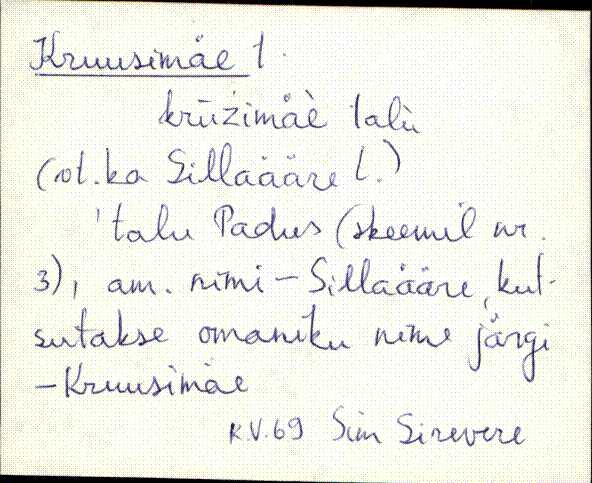 Kruusimäe t.
krūžimäè talù
(vt. ka Sillaääre t.)
'talu Padus (skeemil nr.
3), am. nimi – Sillaääre, kut-
sutakse omaniku nime järgi
– Kruusimäe
K.V.69 Siim Sirevere